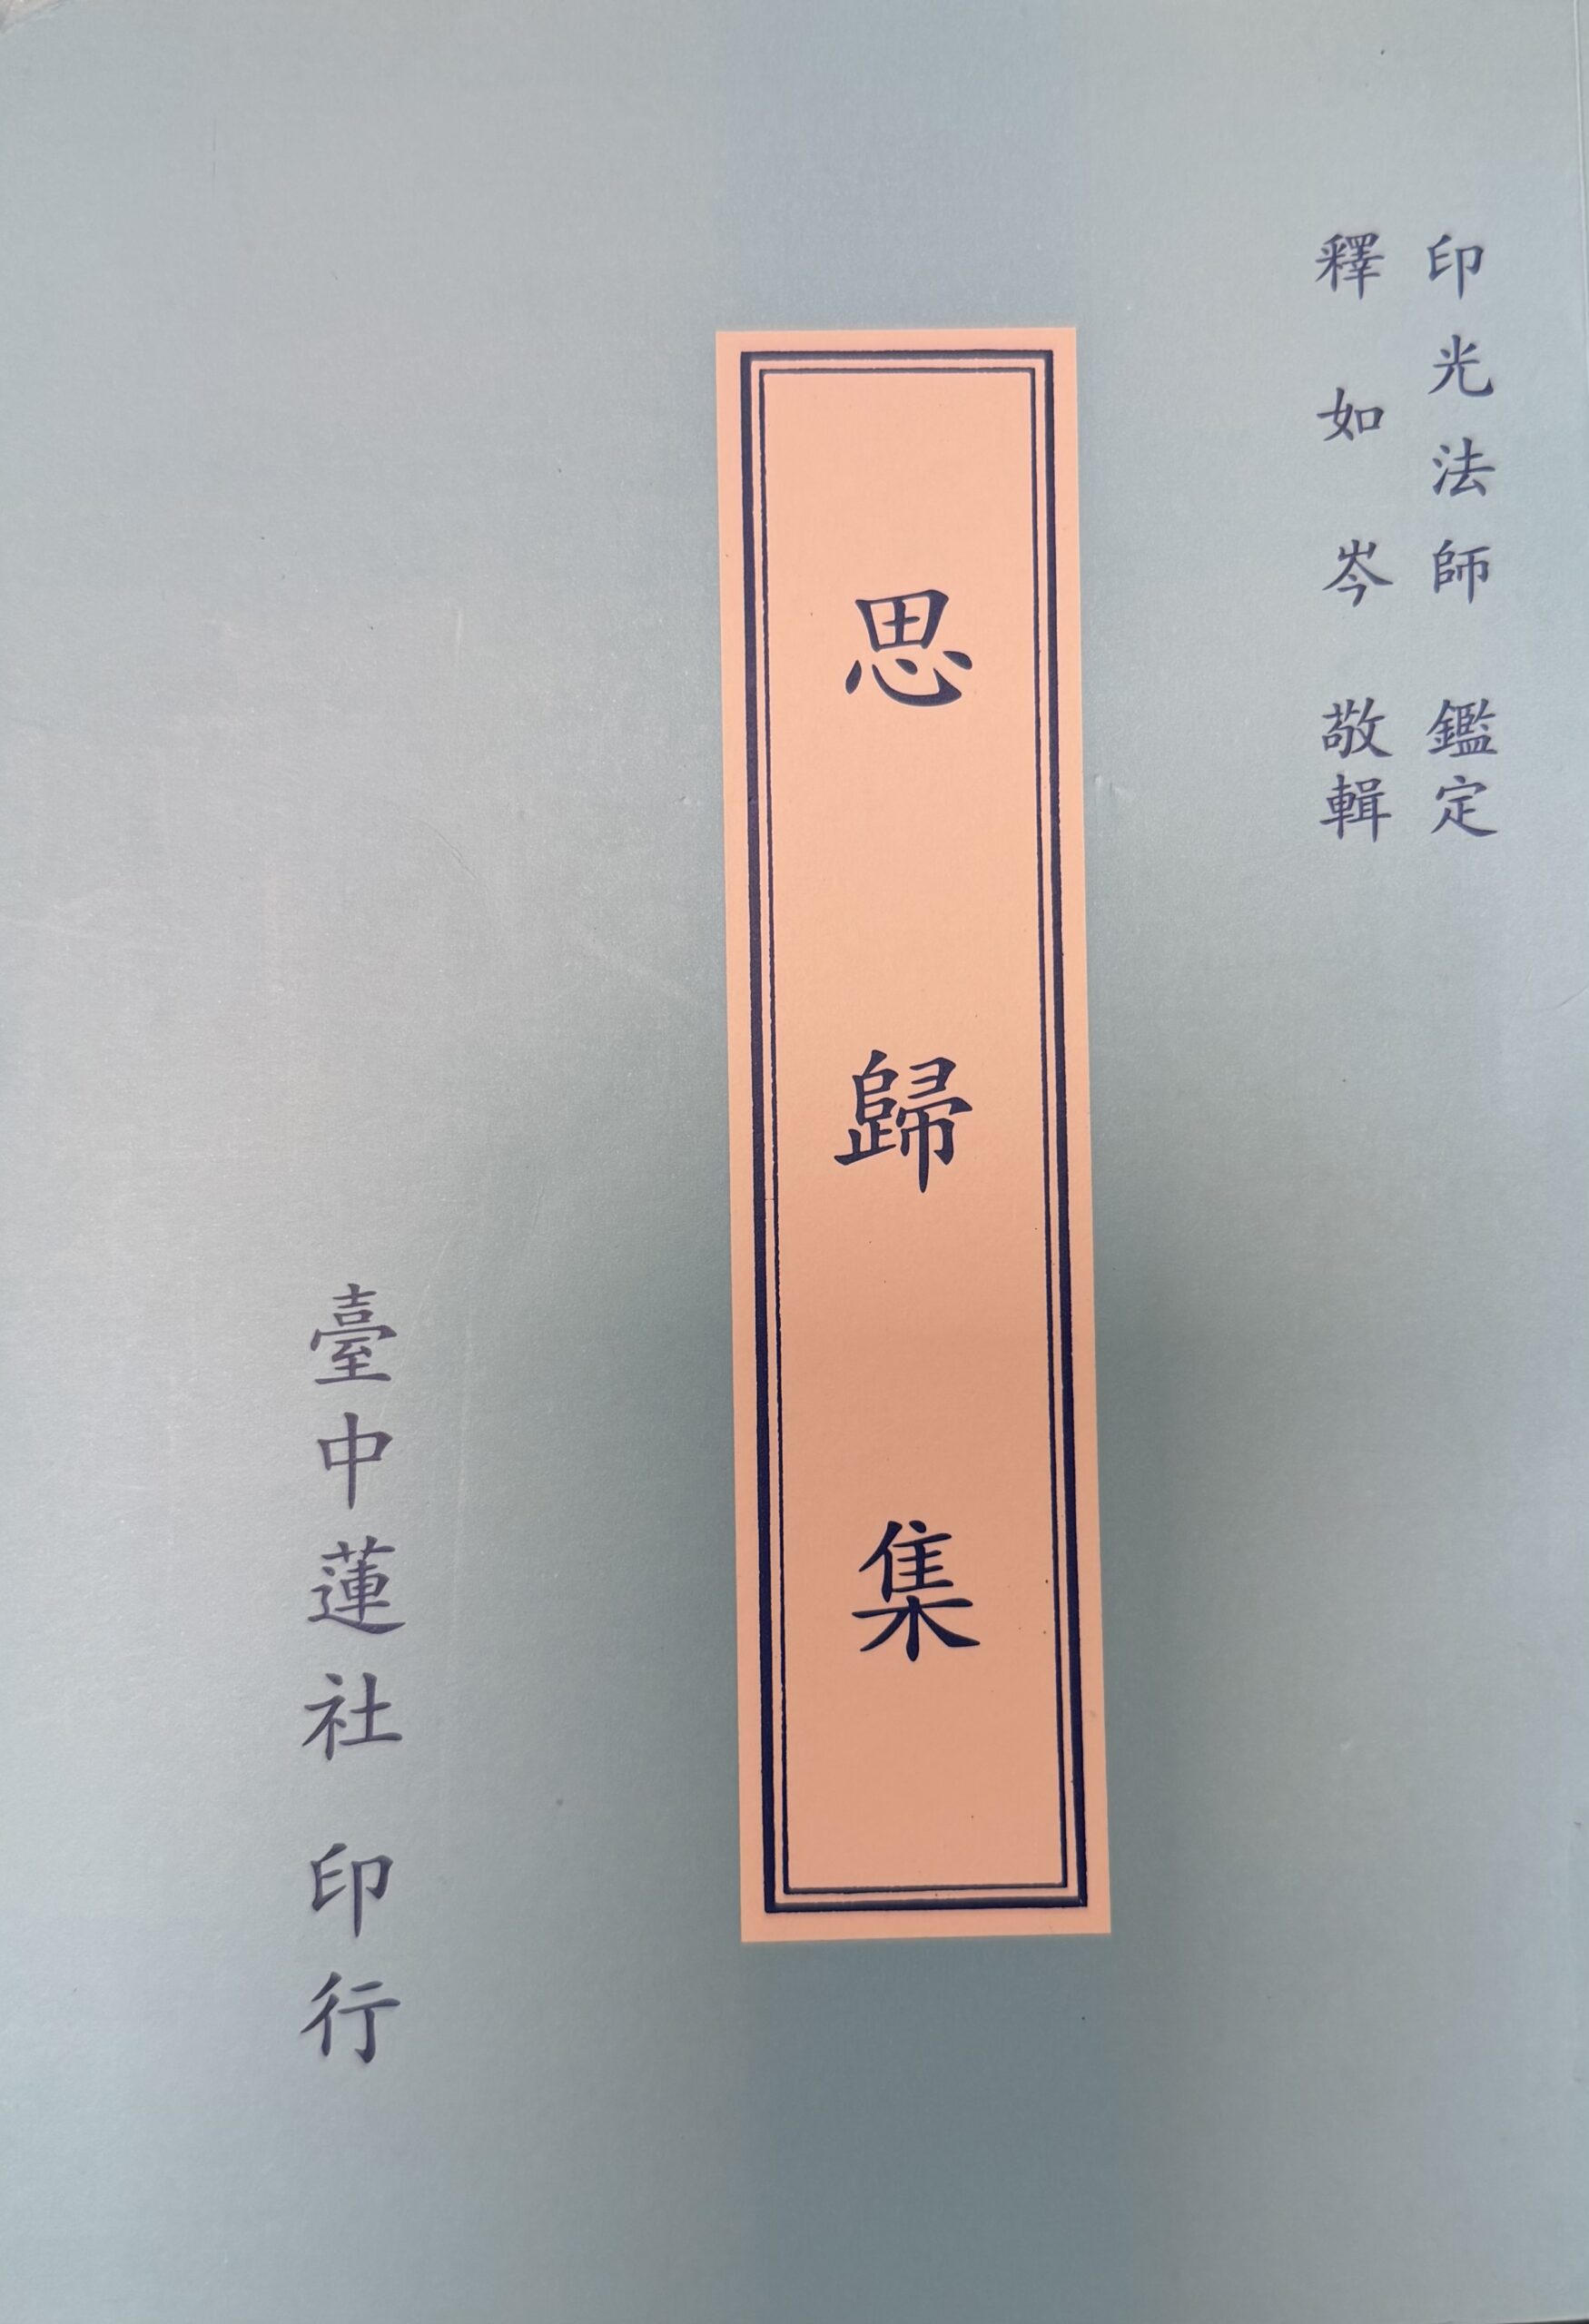 印光法師 鑑定
釋如岑 敬輯
思歸集
臺中蓮社 印行